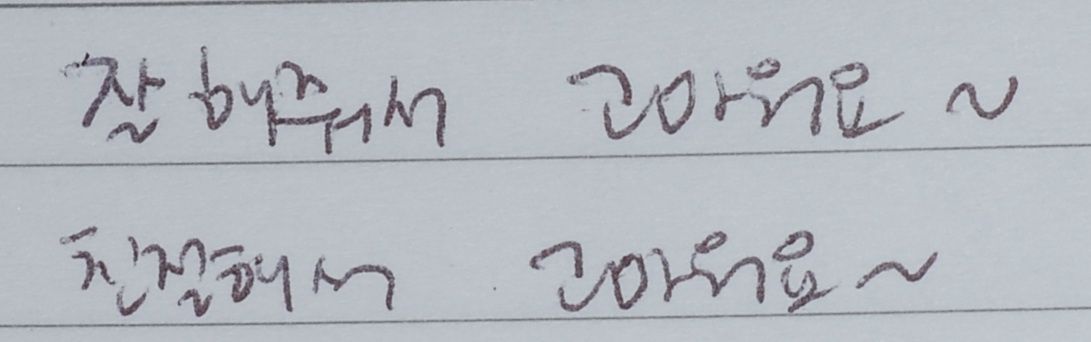 잘해줘서 고마워요~
친절해서 고마워요~